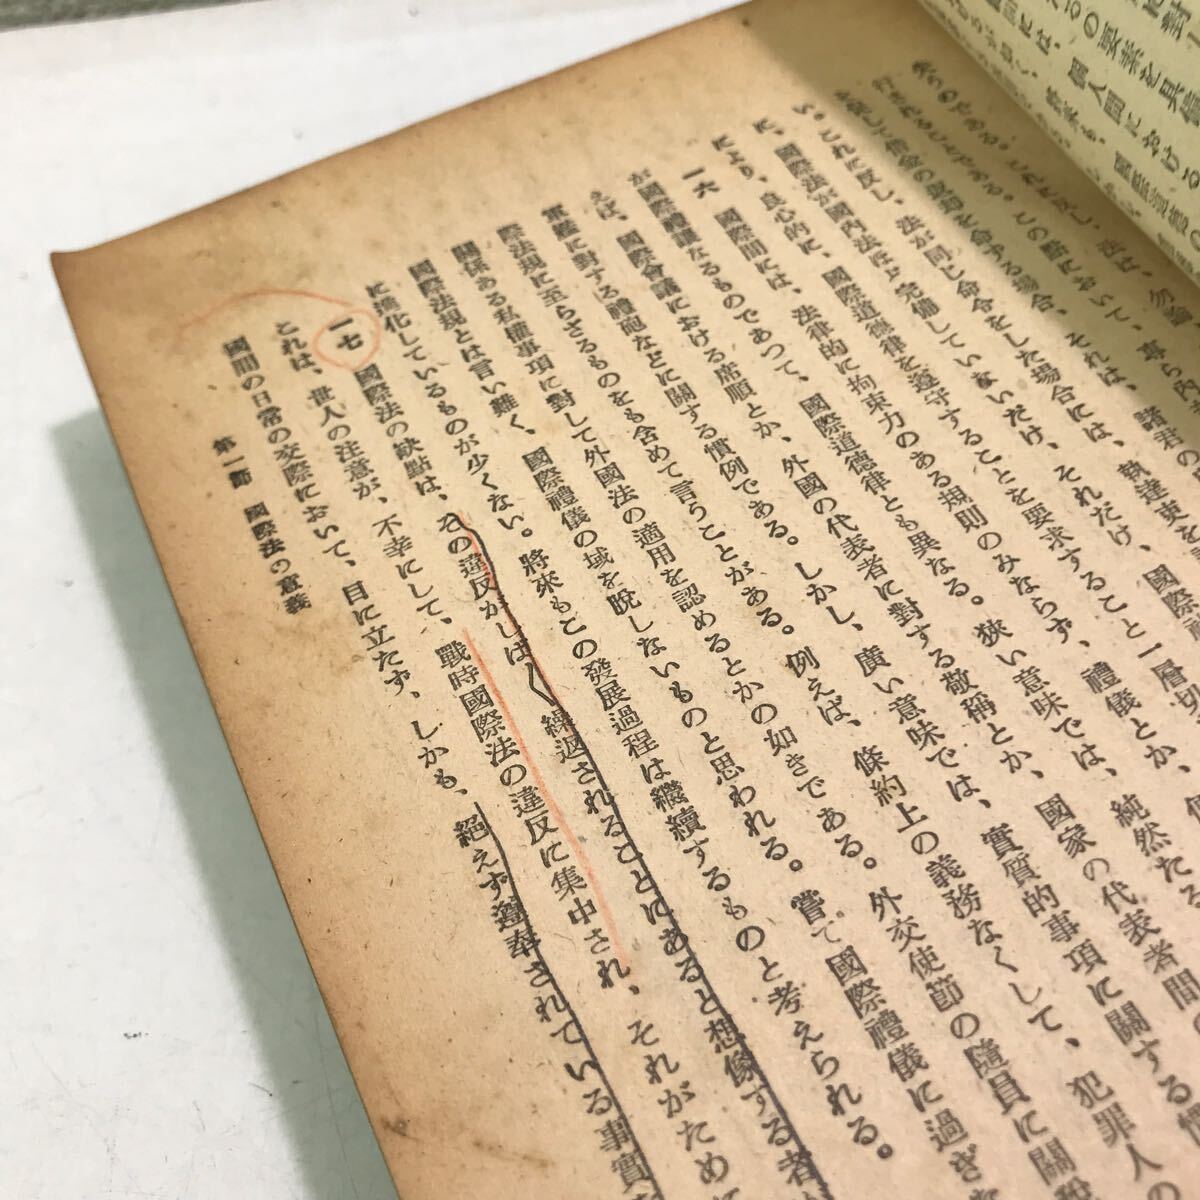 に對し
るの要素を具備
間には、個人間における
失うのである。これに反し、法は、勿論、
行されることである。この點において、專ら內
を促して借金の返却を命ずる場合、それは、諸君の
い。これに反し、法が同じ命令をした場合には、執達吏を
に、國際法が國內法ほど完備していないだけ、それだけ、國際
により、良心的に、國際道德律を遵守することを要求すること一層切
一六 國際間には、法律的に拘束力のある規則のみならず、禮儀とか、
が國際禮讓なるものであつて、國際道德律とも異なる。狹い意味では、純然たる
えば、國際會議における席順とか、外國の代表者に對する敬稱とか、國家の代表者間の
軍艦に對する禮砲などに關する慣例である。しかし、廣い意味では、實質的事項に關する慣
際法規に至らざるものをも含めて言うことがある。例えば、條約上の義務なくして、犯罪人の
關係ある私權事項に對して外國法の適用を認めるとかの如きである。外交使節の隨員に關
國際法規とは言い難く、國際禮儀の域を脫しないものと思われる。嘗て國際禮儀に過ぎ
に進化しているものが少くない。將來もこの發展過程は繼續するものと考えられる。
一七 國際法の缺點は、その違反がしば〱繰返されることにあると想像する者が
これは、世人の注意が、不幸にして、戰時國際法の違反に集中され、それがために
國間の日常の交際において、目に立たず、しかも、絕えず遵奉されている事實
第一節 國際法の意義